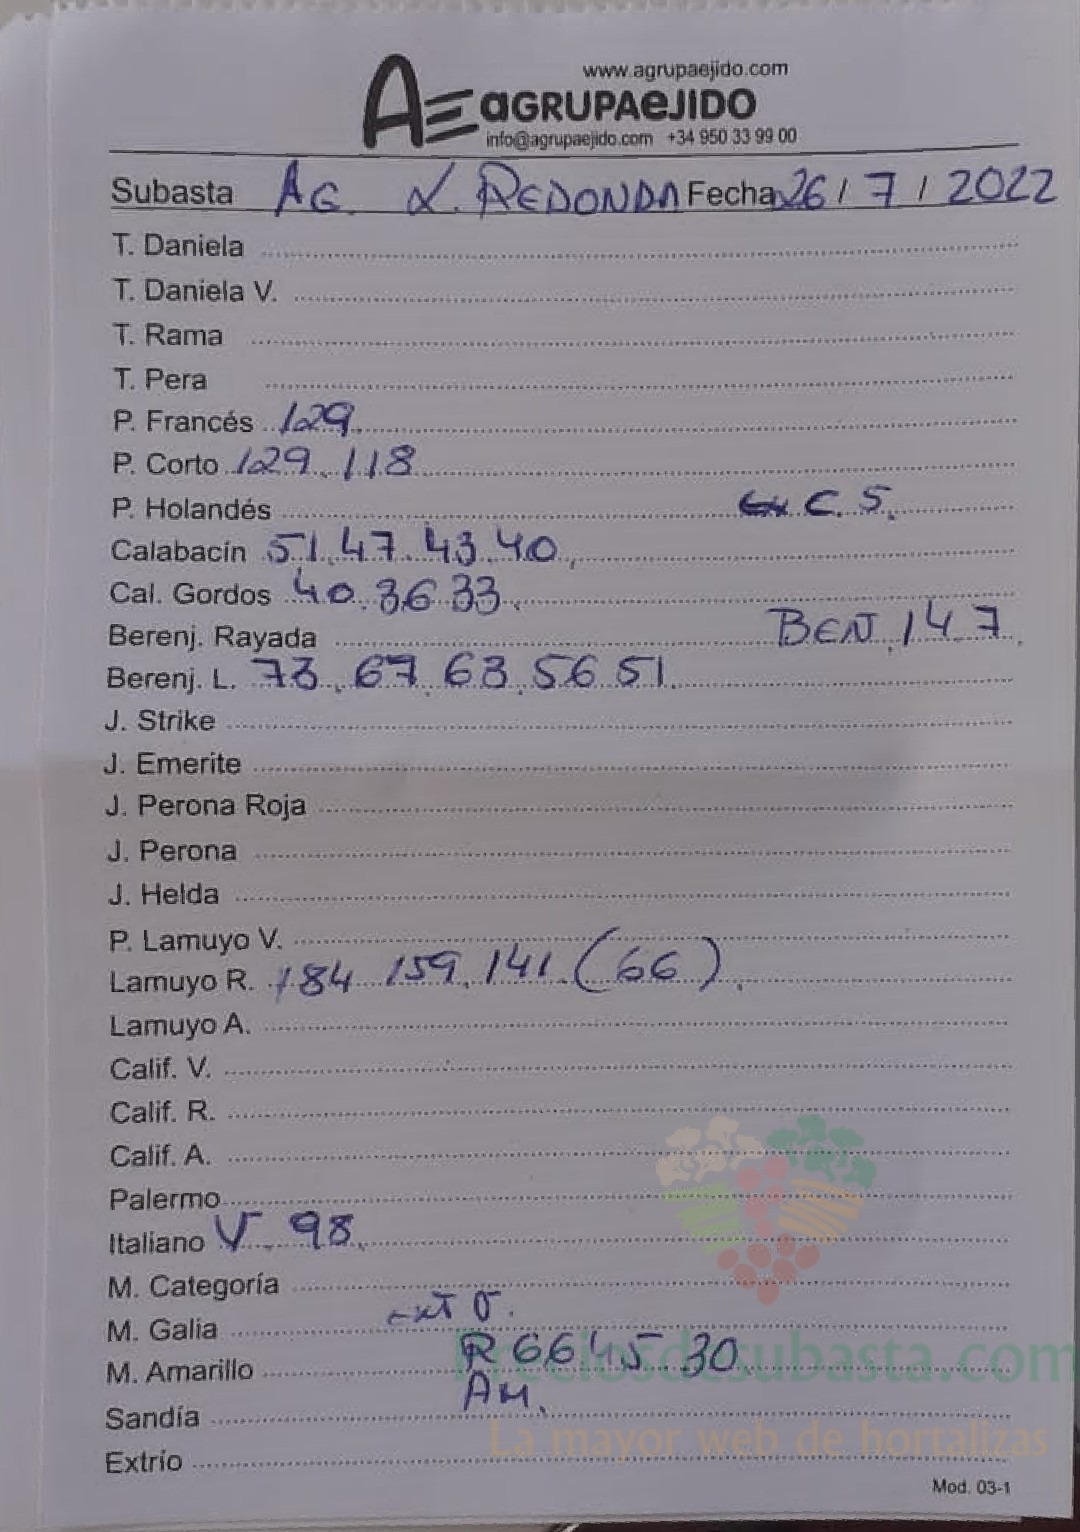 www.agrupaejido.com
AE aGRUPAeJIDO
info@agrupaejido.com +34 950 33 99 00
Subasta AG. L. REDONDA Fecha 26 / 7 / 2022
T. Daniela
T. Daniela V.
T. Rama
T. Pera
P. Francés 129.
P. Corto 129. 118
P. Holandés C. S.
Calabacín 51. 47. 43. 40
Cal. Gordos 40. 36 33.
Berenj. Rayada BEN. 147.
Berenj. L. 73. 67. 63. 56 51.
J. Strike
J. Emerite
J. Perona Roja
J. Perona
J. Helda
P. Lamuyo V.
Lamuyo R. 184 159. 141. (66).
Lamuyo A.
Calif. V.
Calif. R.
Calif. A.
Palermo
Italiano V 98.
M. Categoría
M. Galia
M. Amarillo R 66 45. 30.
AM.
Sandía
Extrío
Preciosdesubasta.com
La mayor web de hortalizas
Mod. 03-1